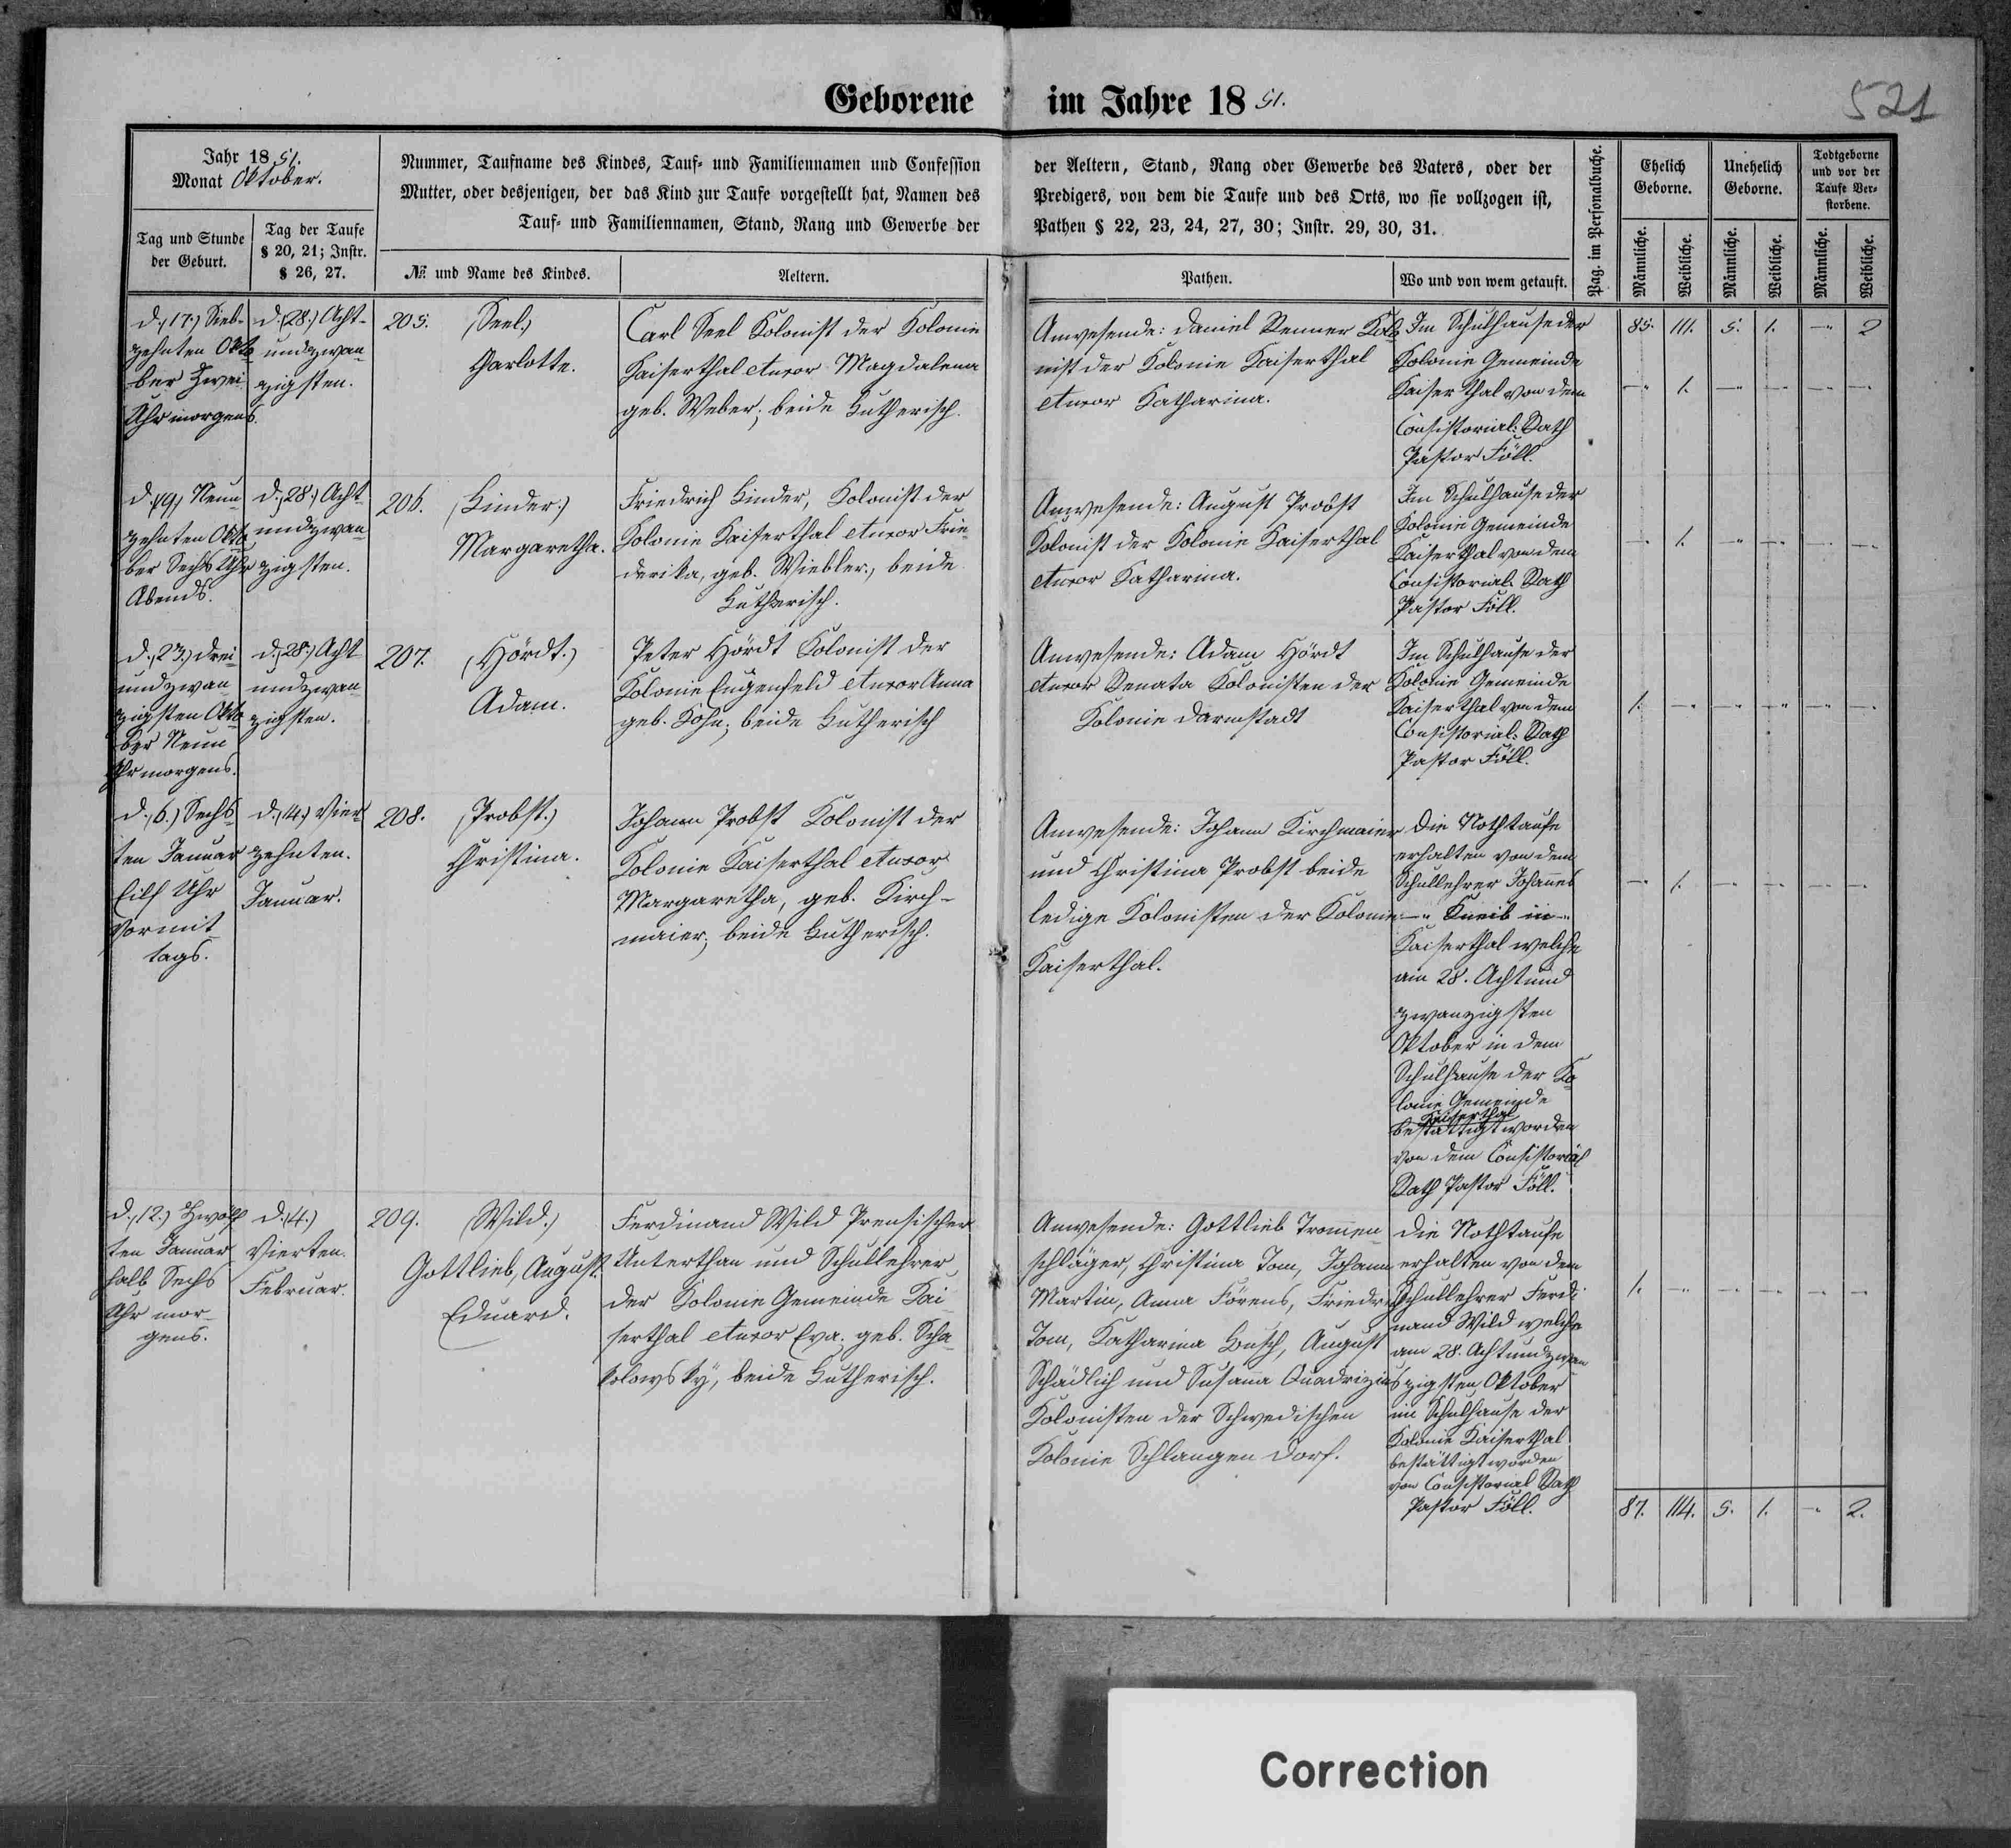 Geborene im Jahre 1851.
521
Jahr 1851.
Monat Oktober.
Tag und Stunde
der Geburt.
Tag der Taufe
§ 20, 21; Instr.
§ 26, 27.
Nummer, Taufname des Kindes, Tauf- und Familiennamen und Confession
Mutter, oder desjenigen, der das Kind zur Taufe vorgestellt hat, Namen des
Tauf- und Familiennamen, Stand, Rang und Gewerbe der
der Aeltern, Stand, Rang oder Gewerbe des Vaters, oder der
Predigers, von dem die Taufe und des Orts, wo sie vollzogen ist,
Pathen § 22, 23, 24, 27, 30; Instr. 29, 30, 31.
№ und Name des Kindes.
Aeltern.
Pathen.
Wo und von wem getauft.
Pag. im Personalbuche.
Ehelich
Geborne.
Unehelich
Geborne.
Todtgeborne
und vor der
Taufe Ver-
storbene.
Männliche.
Weibliche.
Männliche.
Weibliche.
Männliche.
Weibliche.
d. (17.) Sieb-
zehnten Okto
ber Zwei
Uhr morgens.
d. (28.) Acht-
undzwan
zigsten.
205. (Seel.)
Charlotte.
Carl Seel Kolonist der Kolonie
Kaiserthal et uxor Magdalena
geb. Weber; beide Lutherisch.
Anwesende: Daniel Renner Kolo
nist der Kolonie Kaiserthal
et uxor Katharina.
Im Schulhause der
Kolonie Gemeinde
Kaiserthal von dem
Consistorial: Rath
Pastor Föll.
85. 111. 5. 1. — 2
— 1. — — — —
d. (19.) Neun
zehnten Okto
ber Sechs Uhr
Abends.
d. (28.) Acht
undzwan
zigsten.
206. (Linder.)
Margaretha.
Friedrich Linder, Kolonist der
Kolonie Kaiserthal et uxor Frie
derika, geb. Wiebler., beide
Lutherisch.
Anwesende: August Probst
Kolonist der Kolonie Kaiserthal
et uxor Katharina.
Im Schulhause der
Kolonie Gemeinde
Kaiserthal von dem
Consistorial: Rath
Pastor Föll.
— 1. — — — —
d. (23.) drei
undzwan
zigsten Okto
ber Neun
Uhr morgens.
d. (28.) Acht
undzwan
zigsten.
207. (Hördt.)
Adam.
Peter Hördt Kolonist der
Kolonie Eugenfeld et uxor Anna
geb. Kohn; beide Lutherisch
Anwesende: Adam Hördt
et uxor Renata Kolonisten der
Kolonie Darmstadt
Im Schulhause der
Kolonie Gemeinde
Kaiserthal von dem
Consistorial: Rath
Pastor Föll.
1. — — — — —
d. (6.) Sechs
ten Januar
Eilf Uhr
Vormit
tags.
d. (14.) Vier
zehnten.
Januar.
208. (Probst.)
Christina.
Johann Probst Kolonist der
Kolonie Kaiserthal et uxor
Margaretha, geb. Kirch-
maier; beide Lutherisch.
Anwesende: Johann Kirchmaier
und Christina Probst beide
ledige Kolonisten der Kolonie
Kaiserthal.
Die Nothtaufe
erhalten von dem
Schullehrer Johannes
Kneib in
Kaiserthal welche
am 28. Achtund
zwanzigsten
Oktober in dem
Schulhause der Ko
lonie Gemeinde
Kaiserthal
bestättigt worden
von dem Consistorial
Rath Pastor Föll.
— 1. — — — —
d. (12.) Zwölf
ten Januar
halb Sechs
Uhr mor
gens.
d. (4.)
Vierten.
Februar.
209. (Wild.)
Gottlieb, August.
Eduard.
Ferdinand Wild Preusischer
Unterthan und Schullehrer
der Kolonie Gemeinde Kai
serthal et uxor Eva. geb. Scha
kolowsky, beide Lutherisch.
Anwesende: Gottlieb Trommen
schläger, Christina Tom, Johann
Martin, Anna Förens, Friedr
Tom, Katharina Busch, August
Schädlich und Susanna Quadrizius
Kolonisten der Schwedischen
Kolonie Schlangen dorf.
Die Nothtaufe
erhalten von dem
Schullehrer Ferdi
nand Wild welche
am 28. Achtundzwan
zigsten Oktober
im Schulhause der
Kolonie Kaiserthal
bestättigt worden
von Consistorial Rath
Pastor Föll.
1. — — — — —
87. 114. 5. 1. — 2.
Correction